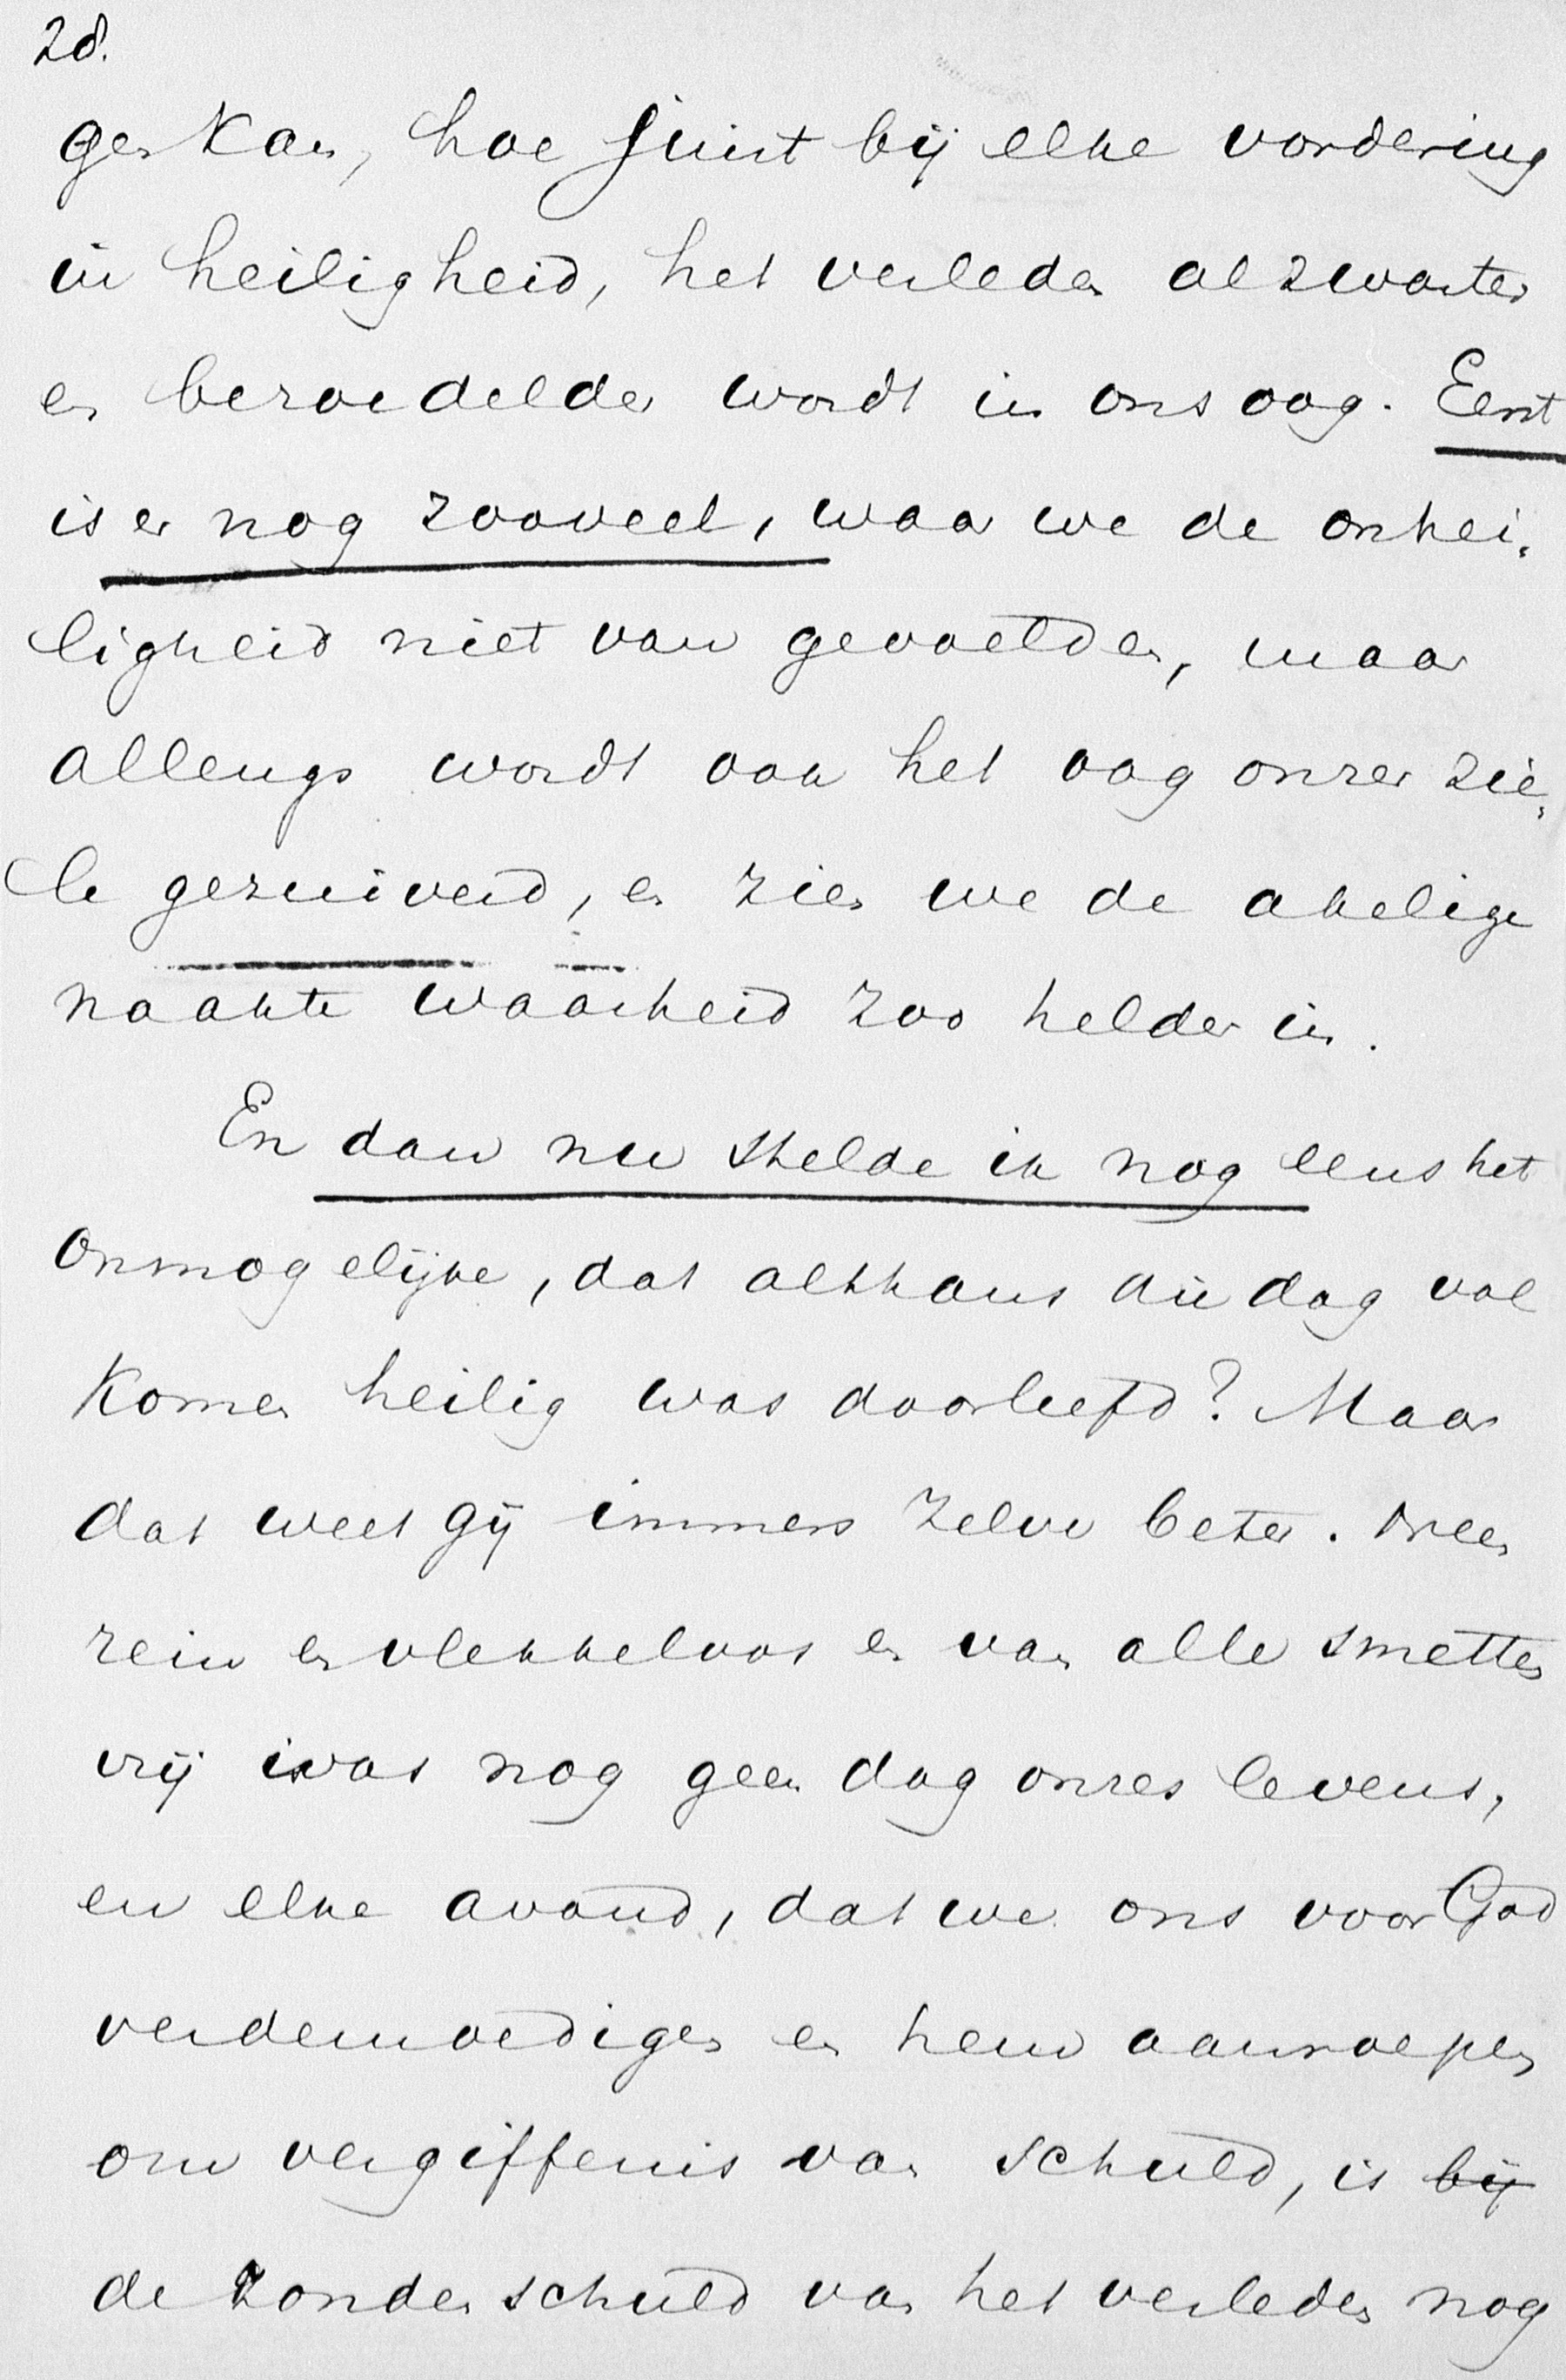 28.
gen kan, hoe juist bij elke vordering
in heiligheid, het verleden al zwarter
en bezoedelder wordt in ons oog. Eerst
is er nog zooveel, waar we de onhei-
ligheid niet van gevoelden, maar
allengs wordt ook het oog onzer zie-
le gezuiverd, en zien we de akelige
naakte waarheid zoo helder in.
En dan nu stelde ik nog eens het
onmogelijke, dat althans die dag vol
komen heilig was doorleefd? Maar
dat weet gij immers zelve beter. Neen
rein en vlekkeloos en van alle smetten
vrij was nog geen dag onzes levens,
en elke avond, dat we ons voor God
verdemoedigen en hem aanroepen
om vergiffenis van schuld, is bij
de zondenschuld van het verleden nog